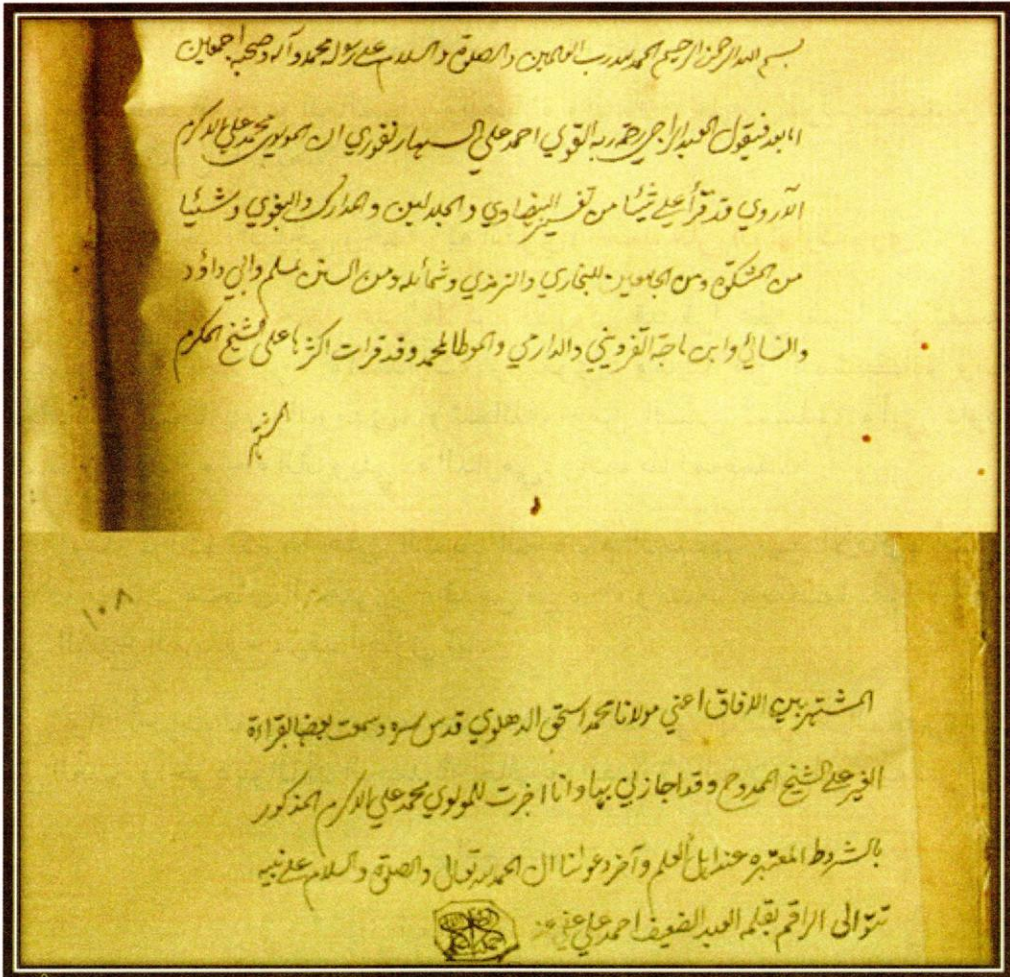 بسم الله الرحمن الرحيم الحمد لله رب العالمين والصلوة والسلام على رسوله محمد وآله وصحبه اجمعين
اما بعد فيقول العبد الراجي رحمة ربه القوي احمد علي السهارنفوري ان المولوي محمد علي اكرم
الآروي قد قرأ علي شيئا من تفسير البيضاوي والجلالين والمدارك والبغوي وشيئا
من المشكوة ومن الجامعين للبخاري والترمذي وشمائله ومن السنن لمسلم وابي داؤد
والنسائي وابن ماجة القزويني والدارمي والموطا لمحمد وقد قرات اكثرها على الشيخ المكرم
المشتهر
١٠٨
المشتهر بين الافاق اعني مولانا محمد اسحق الدهلوي قدس سره وسمعت بعضها بقراءة
الغير على الشيخ الممدوح وقد اجازني بها وانا اجزت للمولوي محمد علي اكرم المذكور
بالشروط المعتبره عند اهل العلم وآخر دعوانا ان الحمد لله تعالى والصلوة والسلام على نبيه
تتوالى الراقم بقلمه العبد الضعيف احمد علي عفي عنه